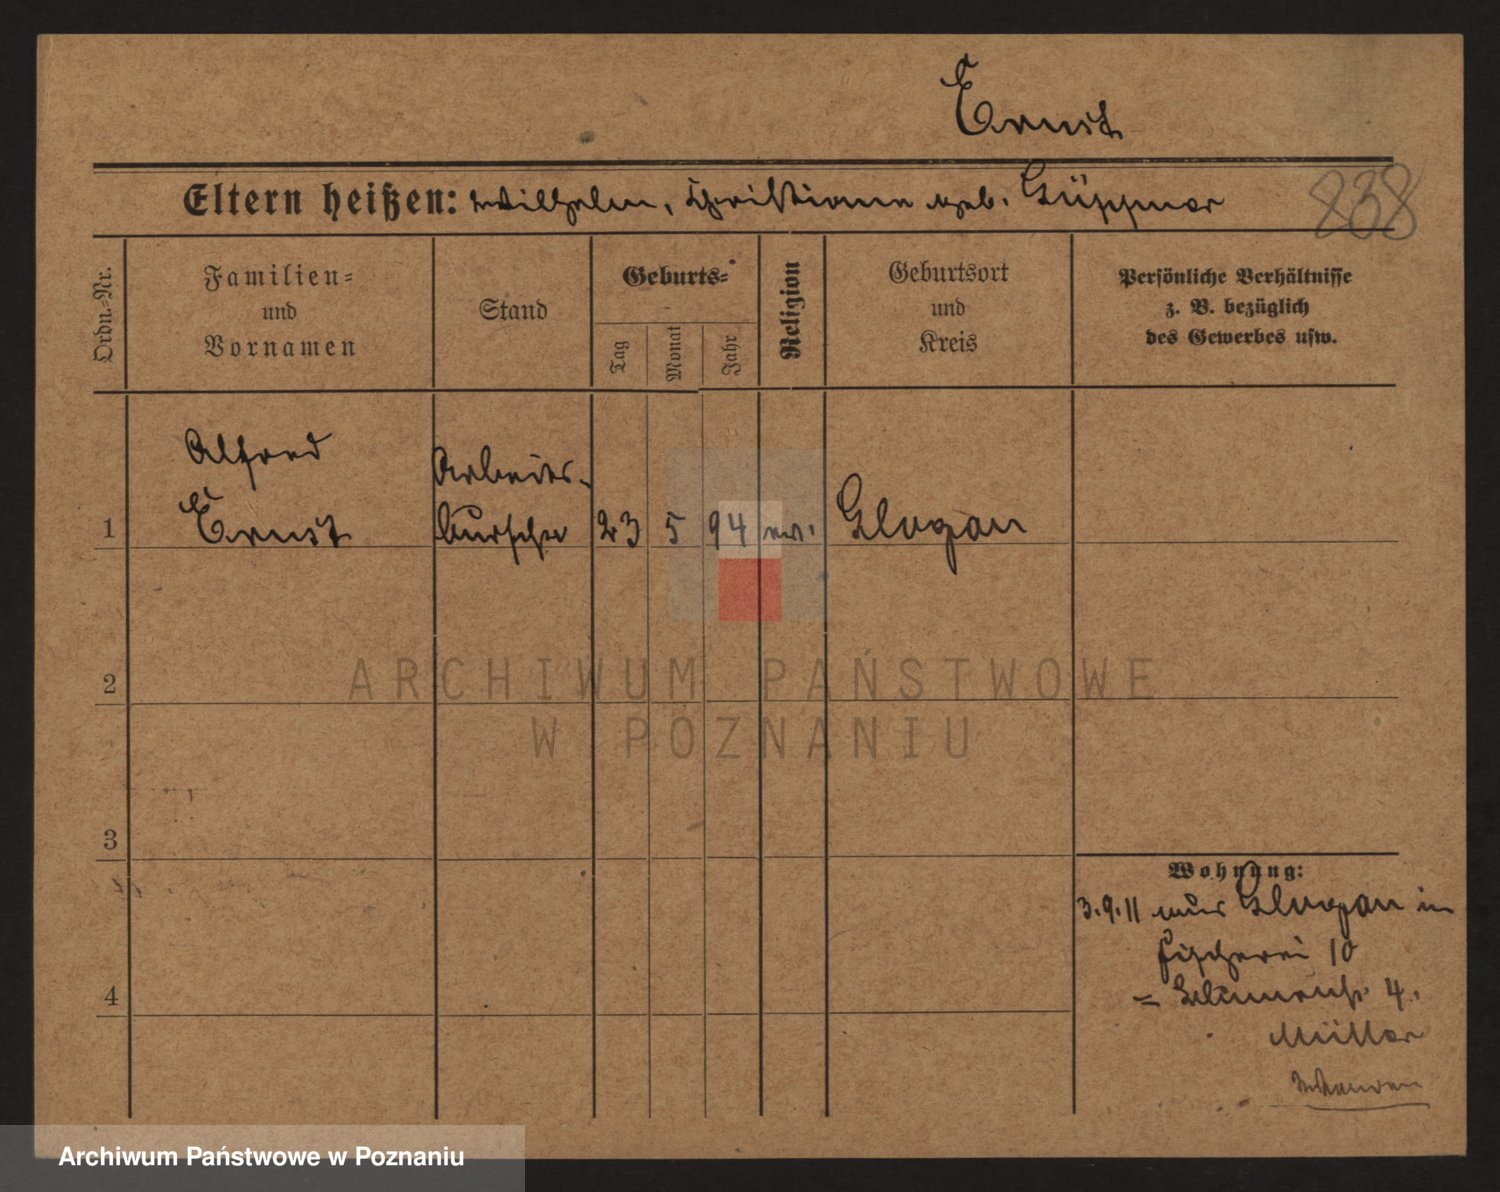 Ernst
Eltern heißen: Wilhelm, Christiane geb.
838
Ordn.-Nr.
Familien-
und
Vornamen
Stand
Geburts-
Tag
Monat
Jahr
Religion
Geburtsort
und
Kreis
Persönliche Verhältnisse
z. B. bezüglich
des Gewerbes usw.
Alfred
Ernst
Arbeits-
bursche
1
23
5
94
ev.
Glogau
2
3
4
Wohnung:
3.9.11 aus Glogau in
Fischerei 10
4.
Müller
ARCHIWUM PAŃSTWOWE
W POZNANIU
Archiwum Państwowe w Poznaniu